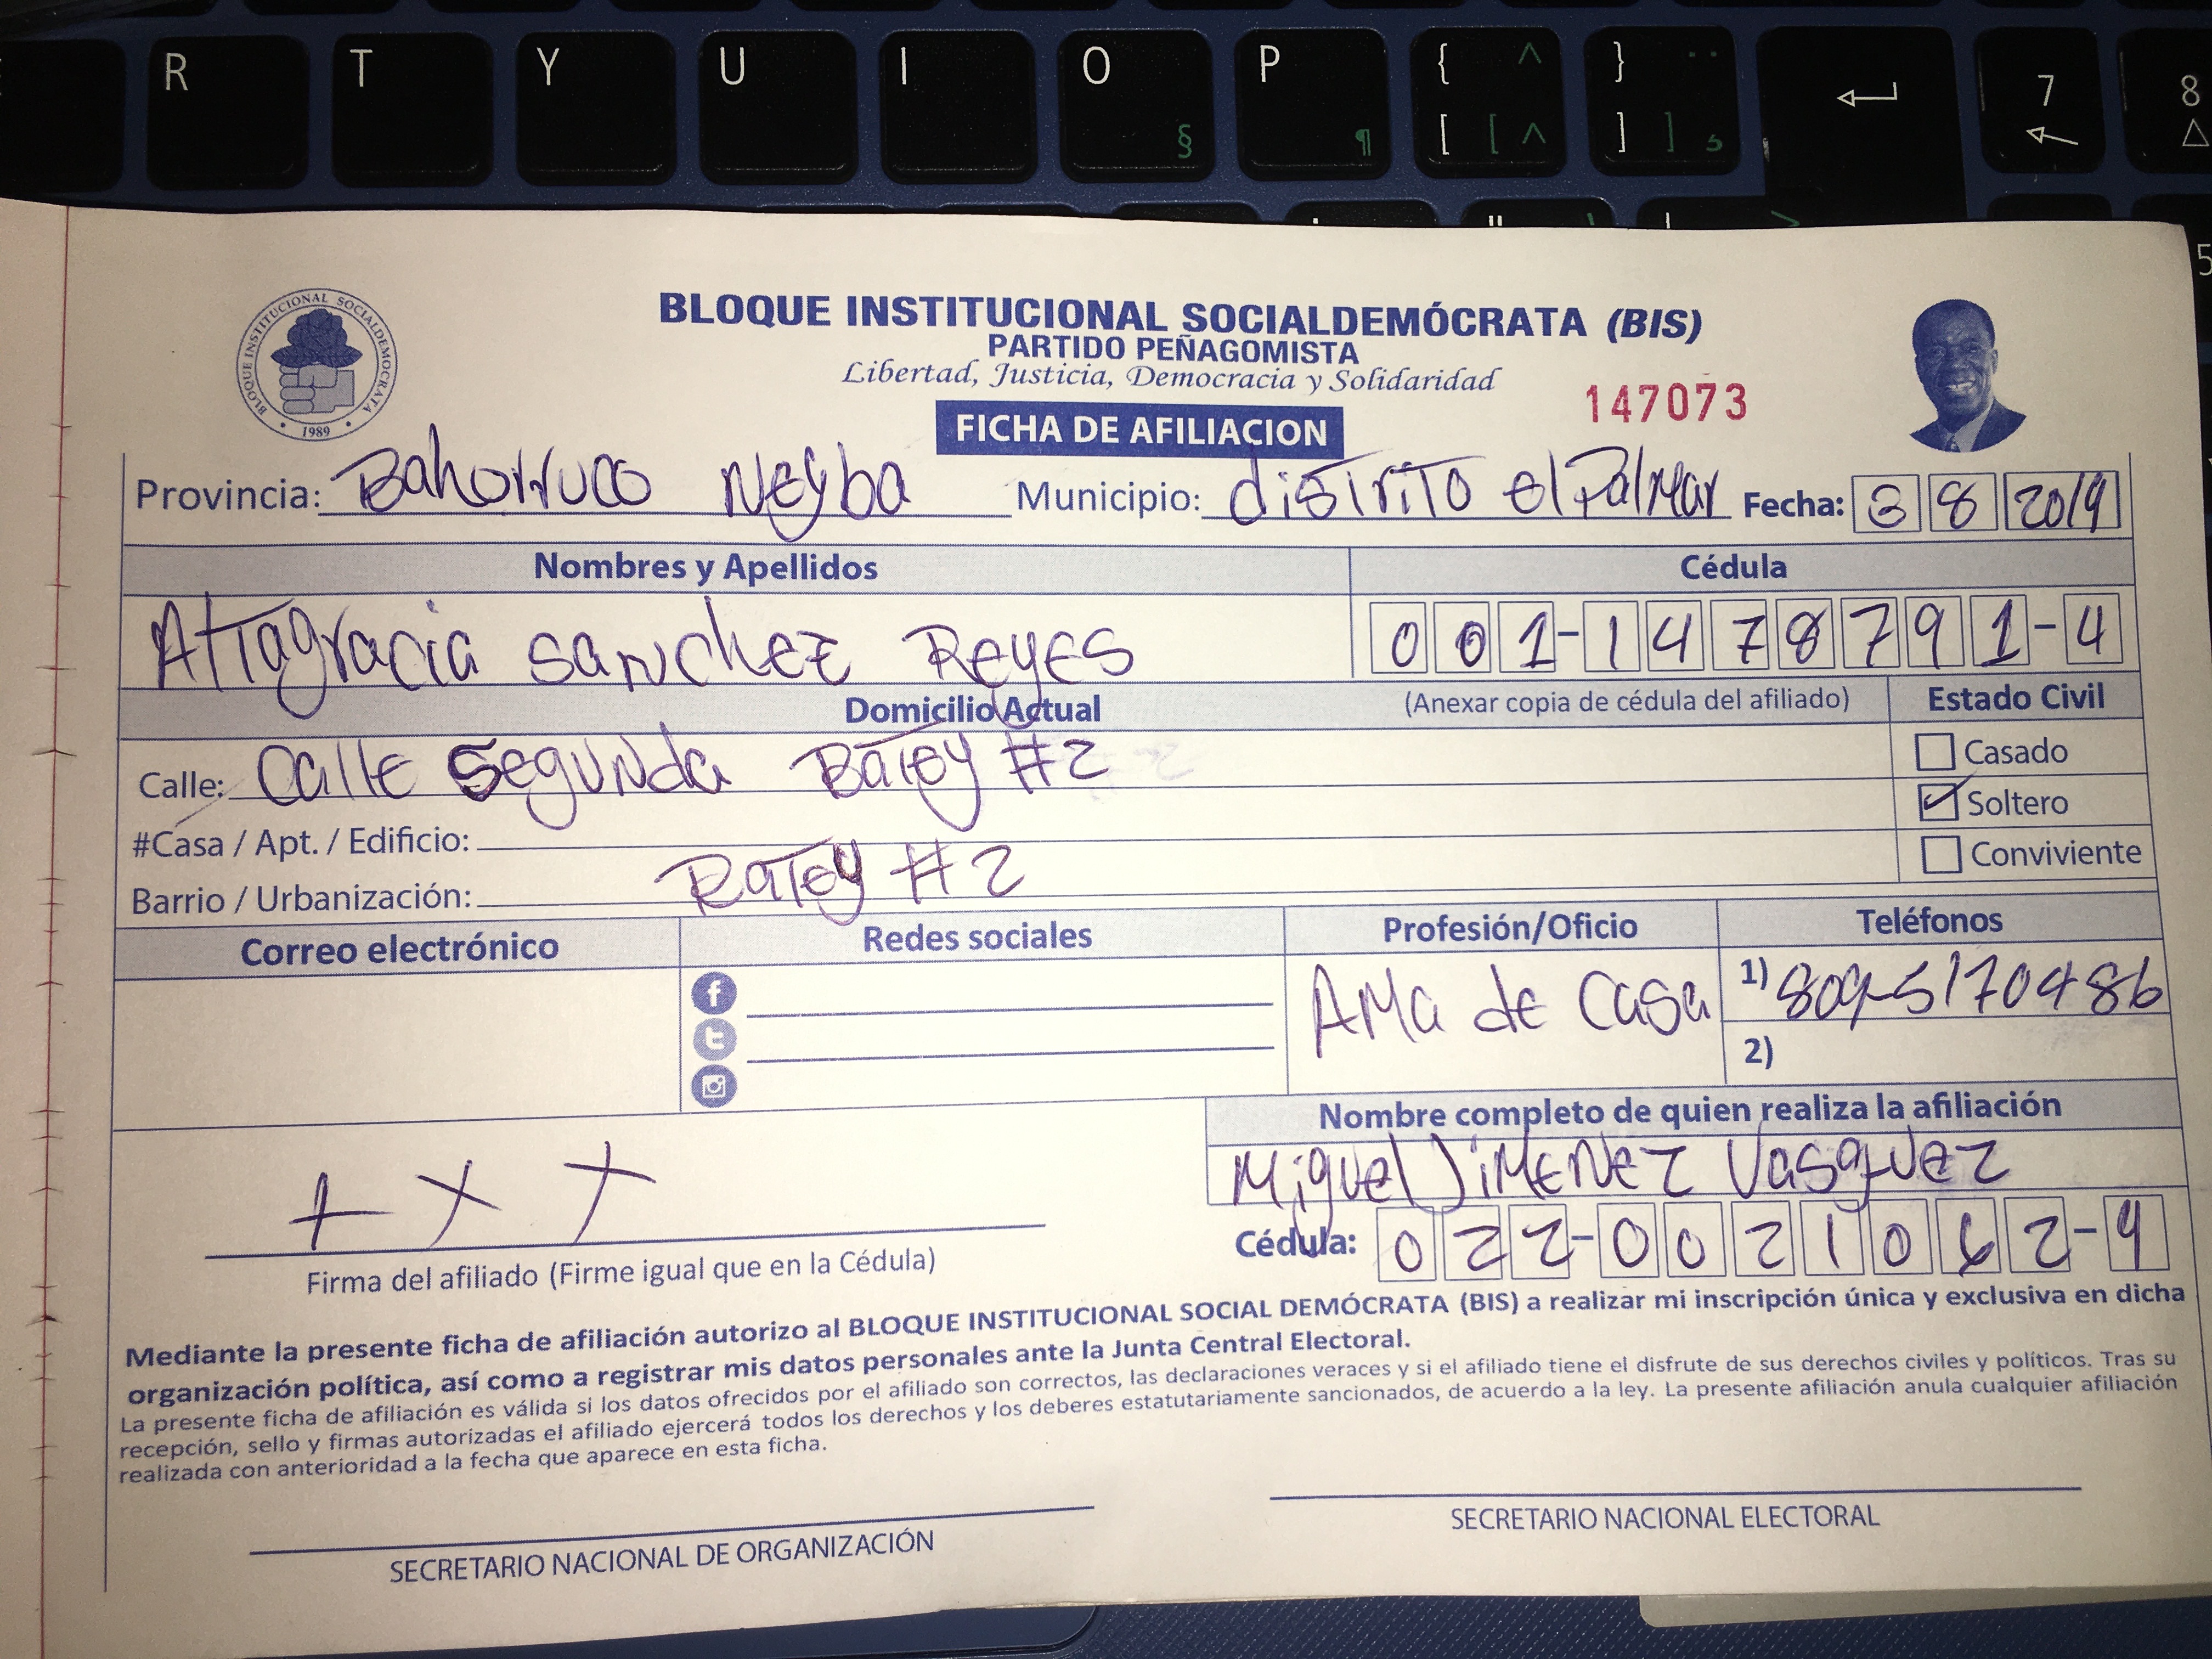 R T Y U I O P { ^ } ¨ 7 8
§ ¶ [ [ ^ ] ]
5
BLOQUE INSTITUCIONAL SOCIALDEMOCRATA
1989
BLOQUE INSTITUCIONAL SOCIALDEMÓCRATA (BIS)
PARTIDO PEÑAGOMISTA
Libertad, Justicia, Democracia y Solidaridad
147073
FICHA DE AFILIACION
Provincia: Bahorruco Neyba Municipio: distrito el Palmar Fecha: 3 8 2019
Nombres y Apellidos Cédula
Altagracia Sanchez Reyes 001-1478791-4
Domicilio Actual (Anexar copia de cédula del afiliado) Estado Civil
Calle: Calle Segunda Batey #2 Casado
Soltero
#Casa / Apt. / Edificio:
Conviviente
Barrio / Urbanización: Batey #2
Correo electrónico Redes sociales Profesión/Oficio Teléfonos
f AMa de Casa 1) 809-5170486
t 2)
Nombre completo de quien realiza la afiliación
Miguel JiMENEZ Vasquez
+ x +
Cédula: 022-0021062-9
Firma del afiliado (Firme igual que en la Cédula)
Mediante la presente ficha de afiliación autorizo al BLOQUE INSTITUCIONAL SOCIAL DEMÓCRATA (BIS) a realizar mi inscripción única y exclusiva en dicha
organización política, así como a registrar mis datos personales ante la Junta Central Electoral.
La presente ficha de afiliación es válida si los datos ofrecidos por el afiliado son correctos, las declaraciones veraces y si el afiliado tiene el disfrute de sus derechos civiles y políticos. Tras su
recepción, sello y firmas autorizadas el afiliado ejercerá todos los derechos y los deberes estatutariamente sancionados, de acuerdo a la ley. La presente afiliación anula cualquier afiliación
realizada con anterioridad a la fecha que aparece en esta ficha.
SECRETARIO NACIONAL DE ORGANIZACIÓN SECRETARIO NACIONAL ELECTORAL